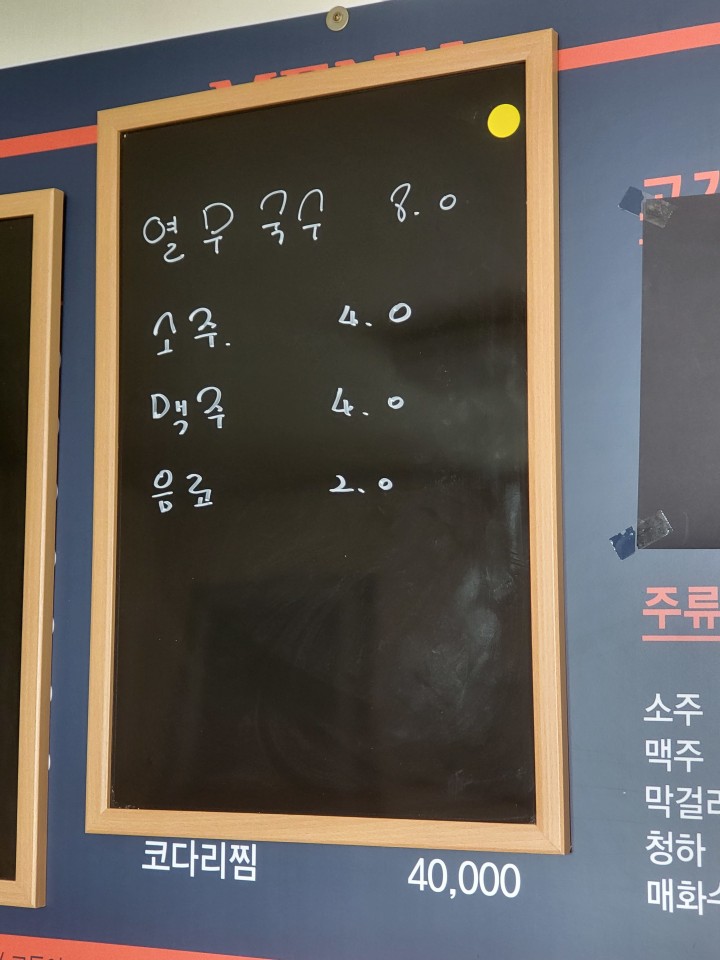 열무국수 8.0
소주. 4.0
맥주 4.0
음료 2.0
코다리찜 40,000
주류
소주
맥주
청하